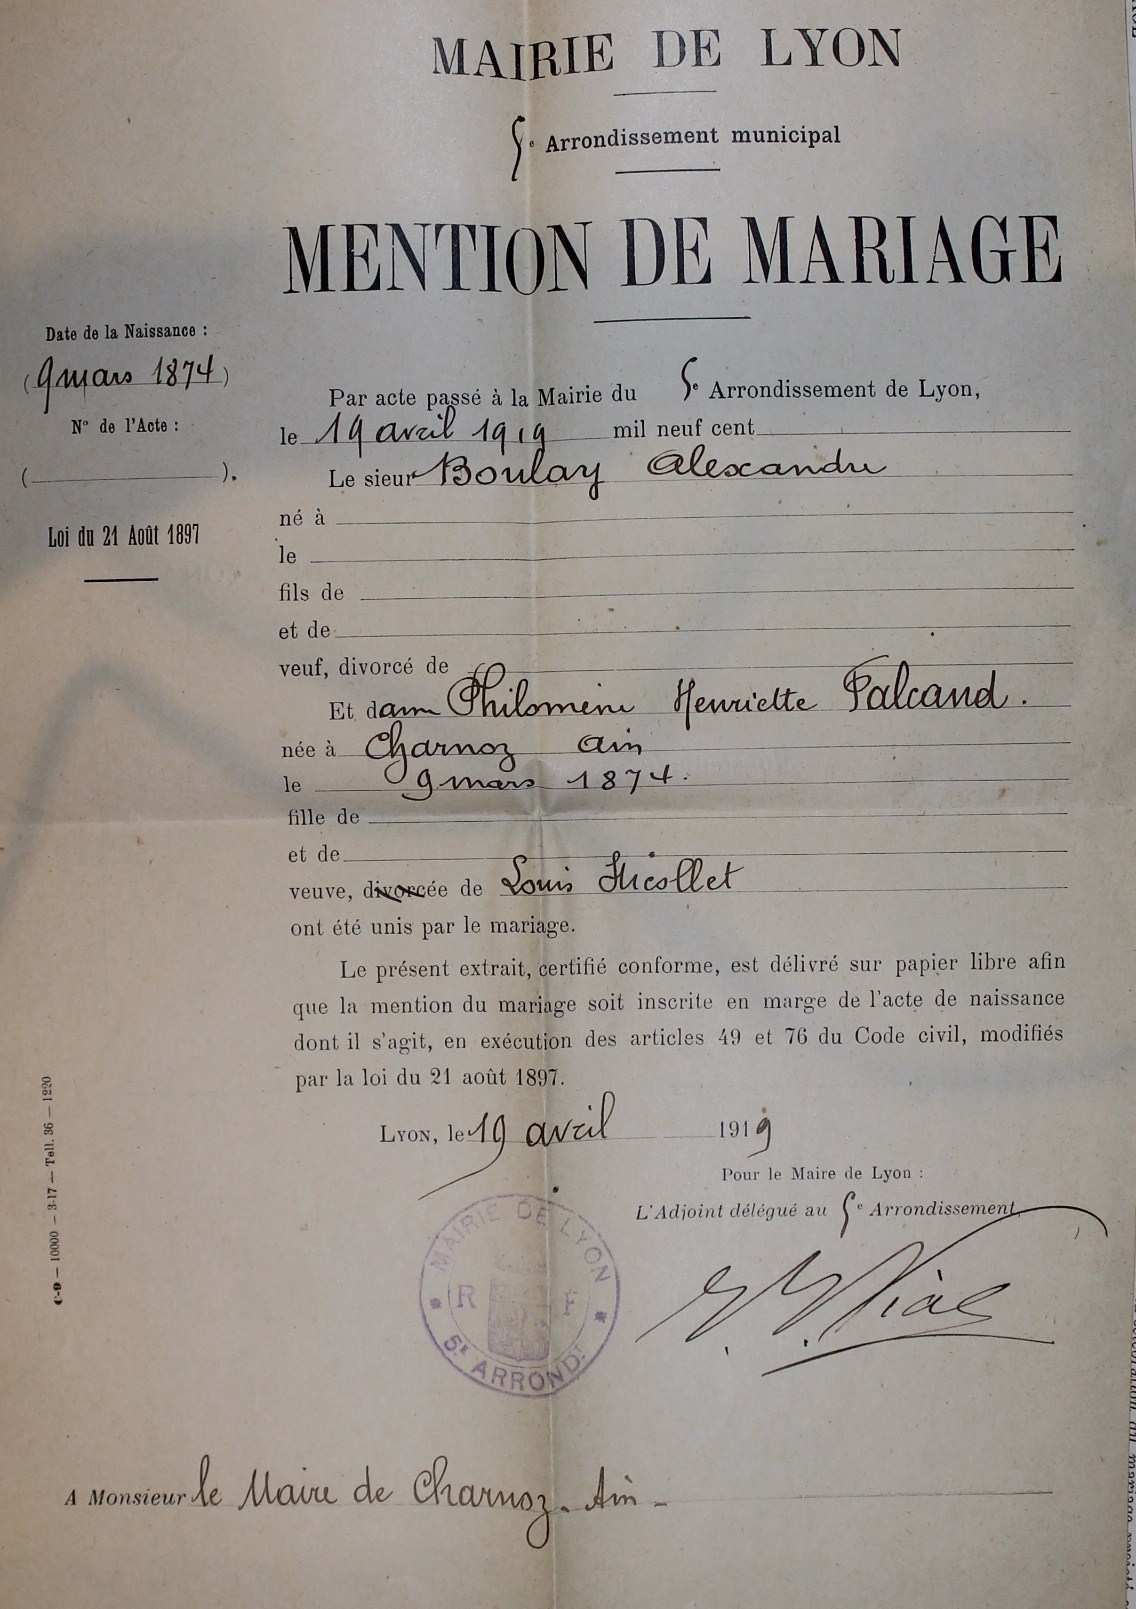 MAIRIE DE LYON
5e Arrondissement municipal
MENTION DE MARIAGE
Date de la Naissance :
(9 mars 1874)
N° de l'Acte :
( ).
Loi du 21 Août 1897
Par acte passé à la Mairie du 5e Arrondissement de Lyon,
le 19 avril 1919 mil neuf cent
Le sieur Boulay Alexandre
né à
le
fils de
et de
veuf, divorcé de
Et dame Philomène Henriette Falcand.
née à Charnoz Ain
le 9 mars 1874.
fille de
et de
veuve, divorcée de Louis Nicollet
ont été unis par le mariage.
Le présent extrait, certifié conforme, est délivré sur papier libre afin
que la mention du mariage soit inscrite en marge de l'acte de naissance
dont il s'agit, en exécution des articles 49 et 76 du Code civil, modifiés
par la loi du 21 août 1897.
LYON, le 19 avril 1919
Pour le Maire de Lyon :
L'Adjoint délégué au 5e Arrondissement,
MAIRIE DE LYON
R F
5E ARRONDT
A Monsieur le Maire de Charnoz - Ain -
— 10000 — 3-17 — Tell. 36 — 1220